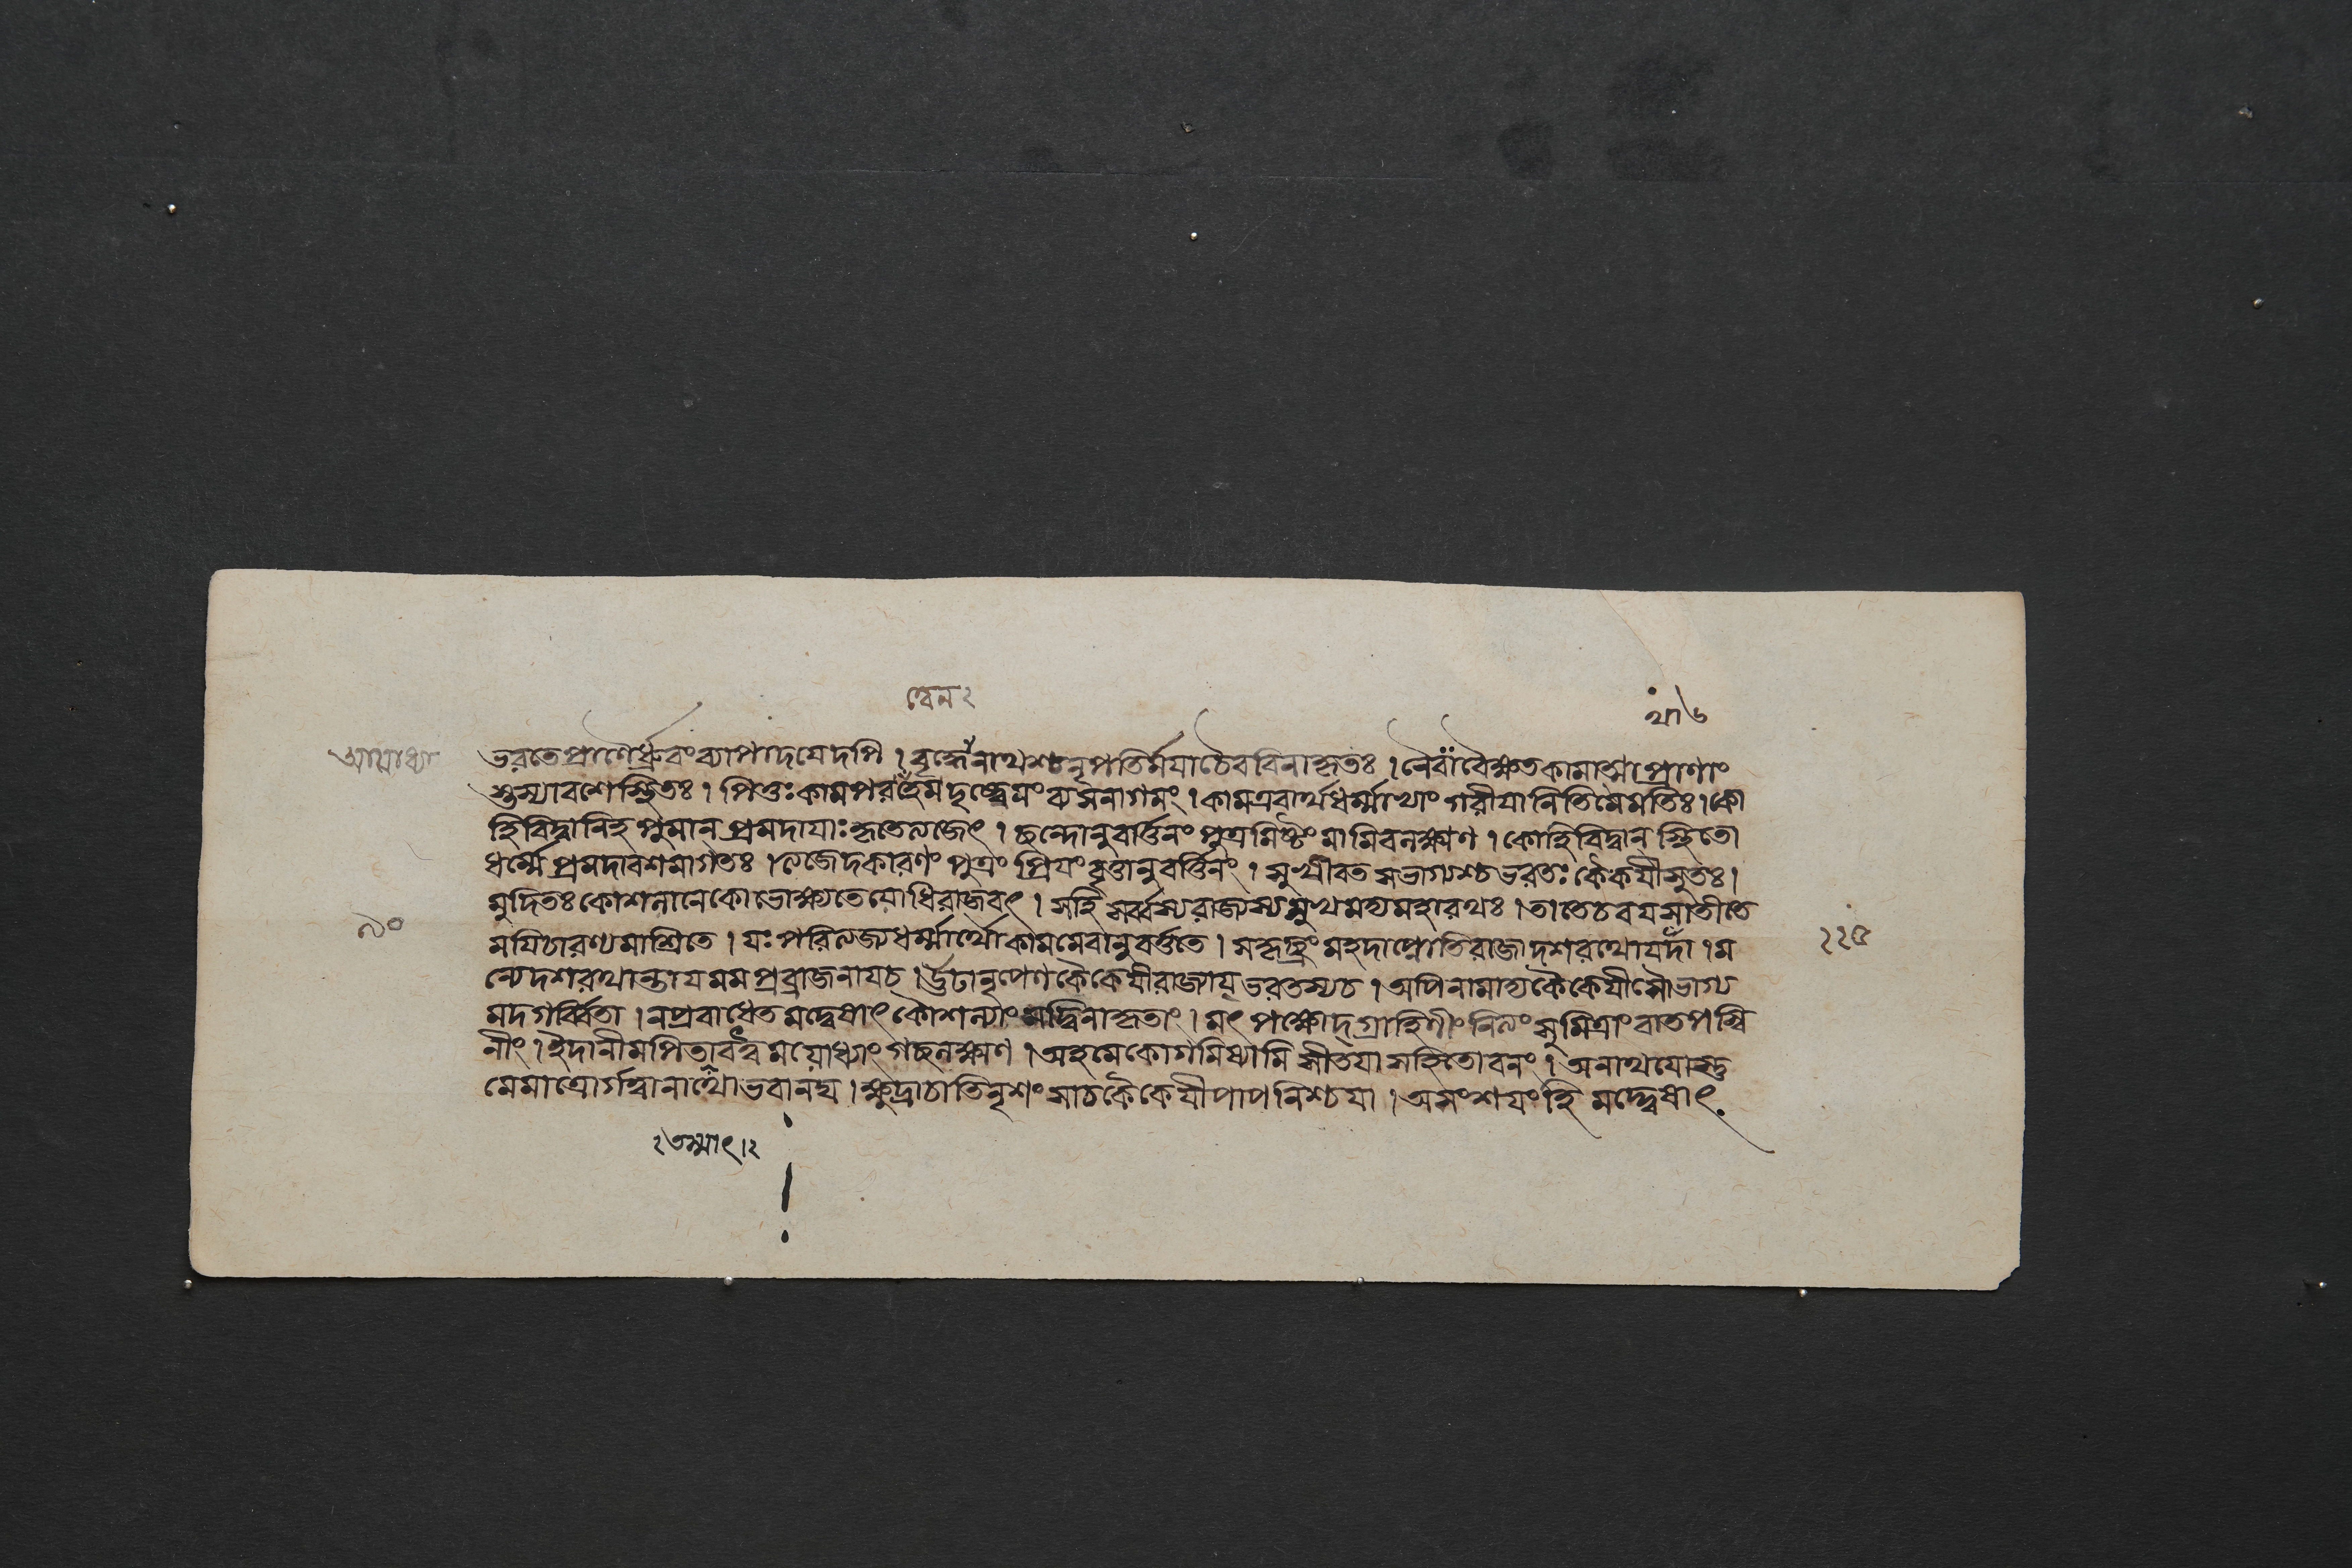 ত্বেন২
থা৬
অযোধ্যা
ভরতে প্রাণৈর্ধ্রুবং ব্যাপাদয়েদপি । বৃদ্ধোনাথশ্চনৃপতির্ময়াচৈববিনাকৃতঃ ।
স্তস্যাবশেস্থিতঃ । পিতুঃকামপর ব্যসনাগমং । কামএবার্থধর্ম্মাভ্যাং গরীয়ানিতিমেমতিঃ । কো
হিবিদ্বানিহপুমান্ প্রমদায়াঃকৃতেত্যজেৎ । ছন্দোনুবর্ত্তিনং পুত্রমিষ্টং মামিবলক্ষ্মণ । কোহিবিদ্বান্ স্থিতো
ধর্ম্মে প্রমদাবশমাগতঃ । ত্যজেদকারণং পুত্রং প্রিয়ং বৃত্তানুবর্ত্তিনং । সুখীবত সভাগ্যশ্চভরতঃ কৈকয়ীসুতঃ ।
মুদিতঃকোশলানেকোভোক্ষ্যতেয়োধিরাজবৎ । সহি সর্ব্বস্যরাজ্যস্যমুখমদ্যমহারথঃ । তাতেচবয়সাতীতে
৯০
ময়িচারণ্যমাশ্রিতে । যঃ পরিত্যজ্যধর্ম্মার্থৌকামমেবানুবর্ত্ততে । সকৃচ্ছ্রং মহদাপ্নোতিরাজাদশরথোযদা । ম
২২৫
ন্যেদশরথান্তায়মমপ্রব্রাজনায়চ । কৈকেয়ীরাজ্যায়ভরতস্যচ । অপিনামাদ্যকৈকেয়ীসৌভাগ্য
মদগর্ব্বিতা । নপ্রবাধেতমদ্দ্বেষাৎ কৌশল্যাং মদ্বিনাকৃতাং । মৎ পক্ষোদ্গ্রাহিণীং নিত্যং সুমিত্রাং বাতপস্বি
নীং । ইদানীমপি ময়োধ্যাং গচ্ছলক্ষ্মণ । অহমেকোগমিষ্যামি সীতয়াসহিতোবনং । অনাথয়োস্তু
মেমাত্রোর্গত্বানাথোভবানঘ । ক্ষুদ্রাচাতিনৃশংসাচকৈকেয়ীপাপনিশ্চয়া । অসংশয়ং হি মদ্দ্বেষাৎ
২তস্মাৎ।২